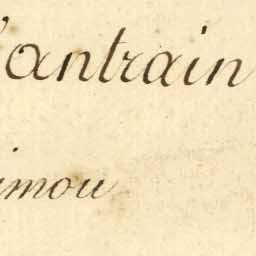 'antrain
imou